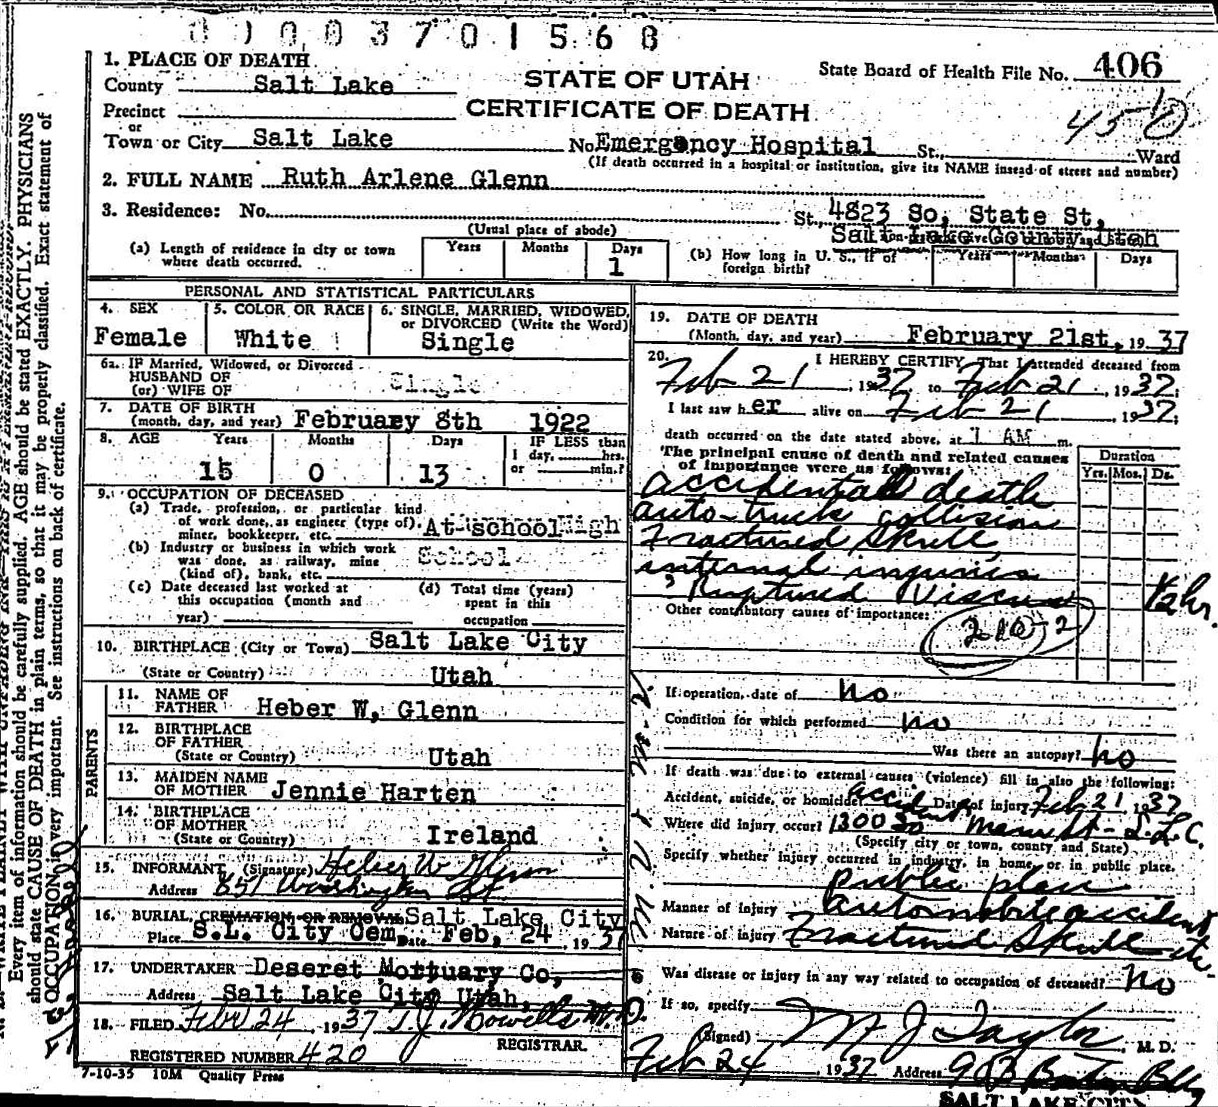 0 0 0 0 3 7 0 1 5 6 8
1. PLACE OF DEATH
County Salt Lake
STATE OF UTAH
State Board of Health File No. 406
Precinct
CERTIFICATE OF DEATH
450
or
Town or City Salt Lake No Emergency Hospital St., Ward
(If death occurred in a hospital or institution, give its NAME instead of street and number)
2. FULL NAME Ruth Arlene Glenn
3. Residence: No. St., 4823 So, State St,
(Usual place of abode)
Salt Lake County, Utah
(a) Length of residence in city or town where death occurred. Years Months Days 1
(b) How long in U. S., if of foreign birth? Years Months Days
PERSONAL AND STATISTICAL PARTICULARS
4. SEX Female
5. COLOR OR RACE White
6. SINGLE, MARRIED, WIDOWED, or DIVORCED (Write the Word) Single
6a. IF Married, Widowed, or Divorced
HUSBAND OF
(or) WIFE OF Single
7. DATE OF BIRTH
(month, day, and year) February 8th 1922
8. AGE Years Months Days IF LESS than
1 day, hrs.
or min.?
15 0 13
9. OCCUPATION OF DECEASED
(a) Trade, profession, or particular kind
of work done, as engineer (type of),
miner, bookkeeper, etc. At school High
(b) Industry or business in which work
was done, as railway, mine
(kind of), bank, etc. School
(c) Date deceased last worked at
this occupation (month and
year)
(d) Total time (years)
spent in this
occupation
10. BIRTHPLACE (City or Town) Salt Lake City
(State or Country) Utah
PARENTS
11. NAME OF FATHER Heber W, Glenn
12. BIRTHPLACE OF FATHER
(State or Country) Utah
13. MAIDEN NAME OF MOTHER Jennie Harten
14. BIRTHPLACE OF MOTHER
(State or Country) Ireland
15. INFORMANT (Signature) Heber W Glenn
Address 651 Washington St
16. BURIAL, CREMATION OR REMOVAL Salt Lake City
Place S.L. City Cem, Date Feb, 24, 1937
17. UNDERTAKER Deseret Mortuary Co,
Address Salt Lake City Utah,
18. FILED Feb 24, 1937 T.J. Howells M.D.
REGISTRAR.
REGISTERED NUMBER 420
7-10-35 10M Quality Press
19. DATE OF DEATH
(Month, day, and year) February 21st, 1937
20. I HEREBY CERTIFY, That I attended deceased from
Feb 21, 1937, to Feb 21, 1937;
I last saw her alive on Feb 21, 1937;
death occurred on the date stated above, at 1 AM m.
The principal cause of death and related causes
of importance were as follows:
Duration
Yrs. Mos. Ds.
accidental death
auto-truck collision
Fractured Skull,
internal injuries
? Ruptured Viscus 1/2 hr.
Other contributory causes of importance:
210-2
If operation, date of no
Condition for which performed no
Was there an autopsy? no
If death was due to external causes (violence) fill in also the following:
Accident, suicide, or homicide? accident Date of injury Feb 21 1937
Where did injury occur? 1300 So Main St - S.L.C.
(Specify city or town, county, and State)
Specify whether injury occurred in industry, in home, or in public place.
public place
Manner of injury automobile accident
Nature of injury Fractured Skull etc.
Was disease or injury in any way related to occupation of deceased? no
If so, specify
(Signed) M J Taylor, M. D.
Feb 24, 1937 Address Boston Bldg
SALT LAKE CITY
Every item of information should be carefully supplied. AGE should be stated EXACTLY. PHYSICIANS
should state CAUSE OF DEATH in plain terms, so that it may be properly classified. Exact statement of
OCCUPATION is very important. See instructions on back of certificate.